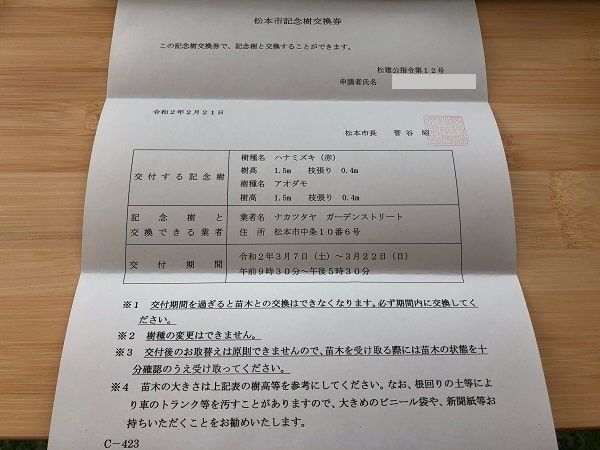 松本市記念樹交換券
この記念樹交換券で、記念樹と交換することができます。
松建公指令第12号
申請者氏名
令和2年2月21日
松本市長 菅谷 昭
交付する記念樹
樹種名 ハナミズキ（赤）
樹高 1.5m 枝張り 0.4m
樹種名 アオダモ
樹高 1.5m 枝張り 0.4m
記念樹と
交換できる業者
業者名 ナカツタヤ ガーデンストリート
住所 松本市中条10番6号
交付期間
令和2年3月7日（土）～3月22日（日）
午前9時30分～午後5時30分
※1 交付期間を過ぎると苗木との交換はできなくなります。必ず期間内に交換してく
ださい。
※2 樹種の変更はできません。
※3 交付後のお取替えは原則できませんので、苗木を受け取る際には苗木の状態を十
分確認のうえ受け取ってください。
※4 苗木の大きさは上記表の樹高等を参考にしてください。なお、根回りの土等によ
り車のトランク等を汚すことがありますので、大きめのビニール袋や、新聞紙等お
持ちいただくことをお勧めいたします。
C－423